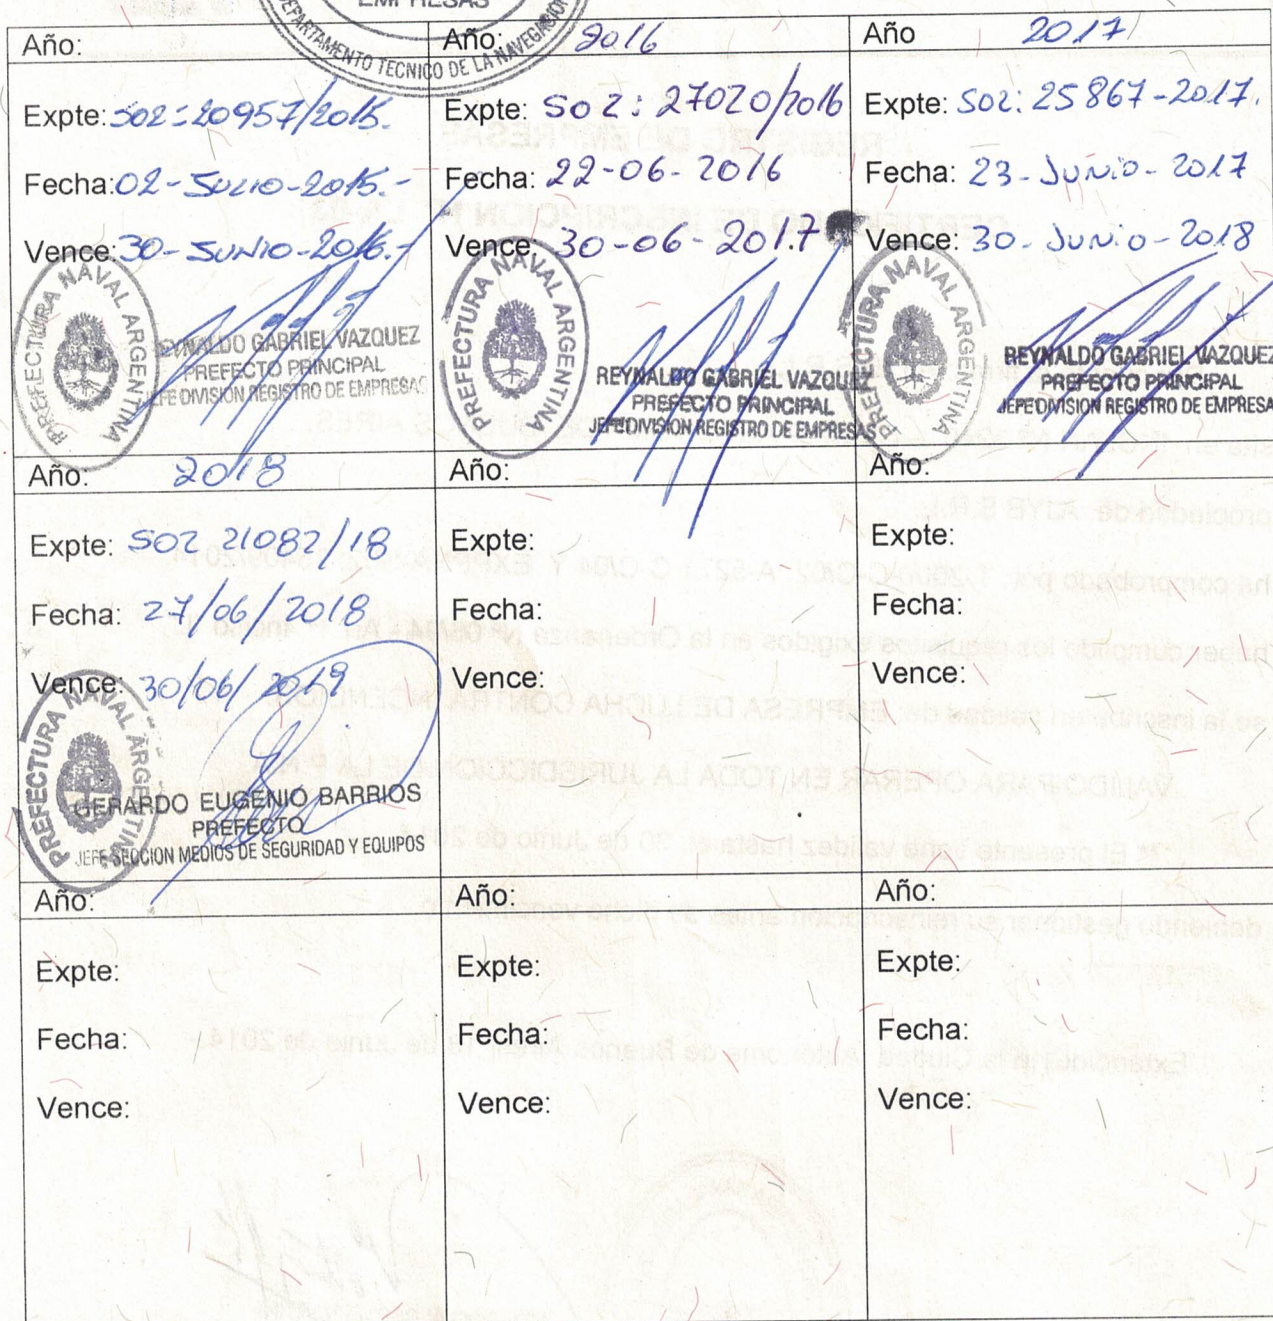 EMPRESAS
DEPARTAMENTO TECNICO DE LA NAVEGACION
Año:
Expte: S02:20957/2015.
Fecha: 02-Julio-2015.-
Vence: 30-Junio-2016.-
PREFECTURA NAVAL ARGENTINA
REYNALDO GABRIEL VAZQUEZ
PREFECTO PRINCIPAL
JEFE DIVISION REGISTRO DE EMPRESAS
Año: 2016
Expte: S02: 27020/2016
Fecha: 22-06-2016
Vence: 30-06-2017
PREFECTURA NAVAL ARGENTINA
REYNALDO GABRIEL VAZQUEZ
PREFECTO PRINCIPAL
JEFE DIVISION REGISTRO DE EMPRESAS
Año 2017
Expte: S02: 25867-2017.
Fecha: 23-Junio-2017
Vence: 30-Junio-2018
PREFECTURA NAVAL ARGENTINA
REYNALDO GABRIEL VAZQUEZ
PREFECTO PRINCIPAL
JEFE DIVISION REGISTRO DE EMPRESA
Año: 2018
Expte: S02 21082/18
Fecha: 27/06/2018
Vence: 30/06/2019
PREFECTURA NAVAL ARGENTINA
GERARDO EUGENIO BARRIOS
PREFECTO
JEFE SECCION MEDIOS DE SEGURIDAD Y EQUIPOS
Año:
Expte:
Fecha:
Vence:
Año:
Expte:
Fecha:
Vence:
Año:
Expte:
Fecha:
Vence:
Año:
Expte:
Fecha:
Vence:
Año:
Expte:
Fecha:
Vence: